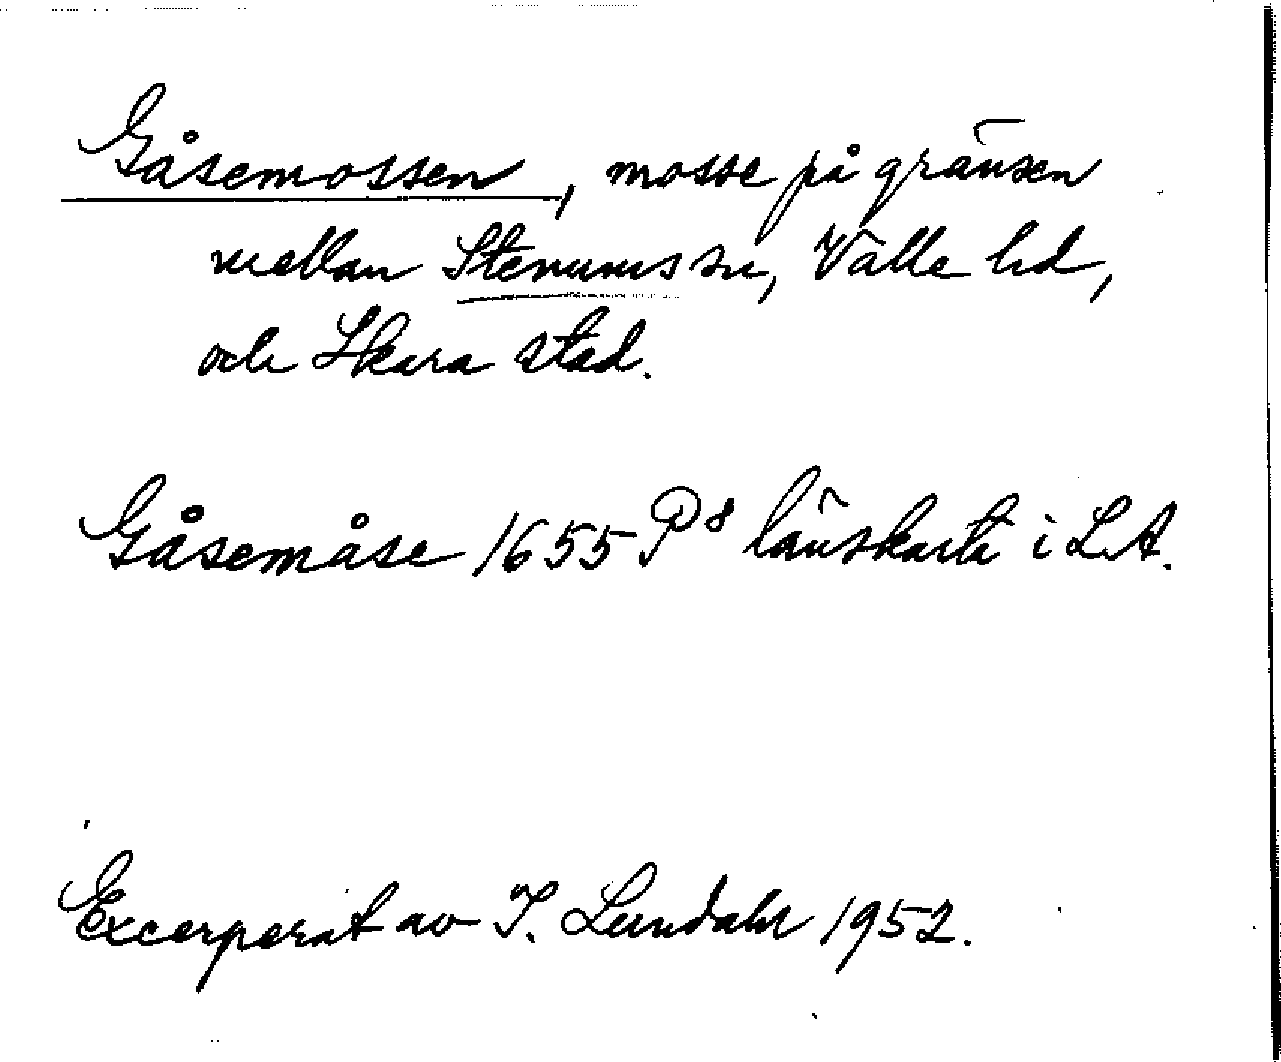 Gåsemossen, mosse på gränsen
mellan Stenums sn, Valle hd,
och Skara stad.
Gåsemåse 1655 P8 länskarta i LA.
Excerperat av I. Lundahl 1952.